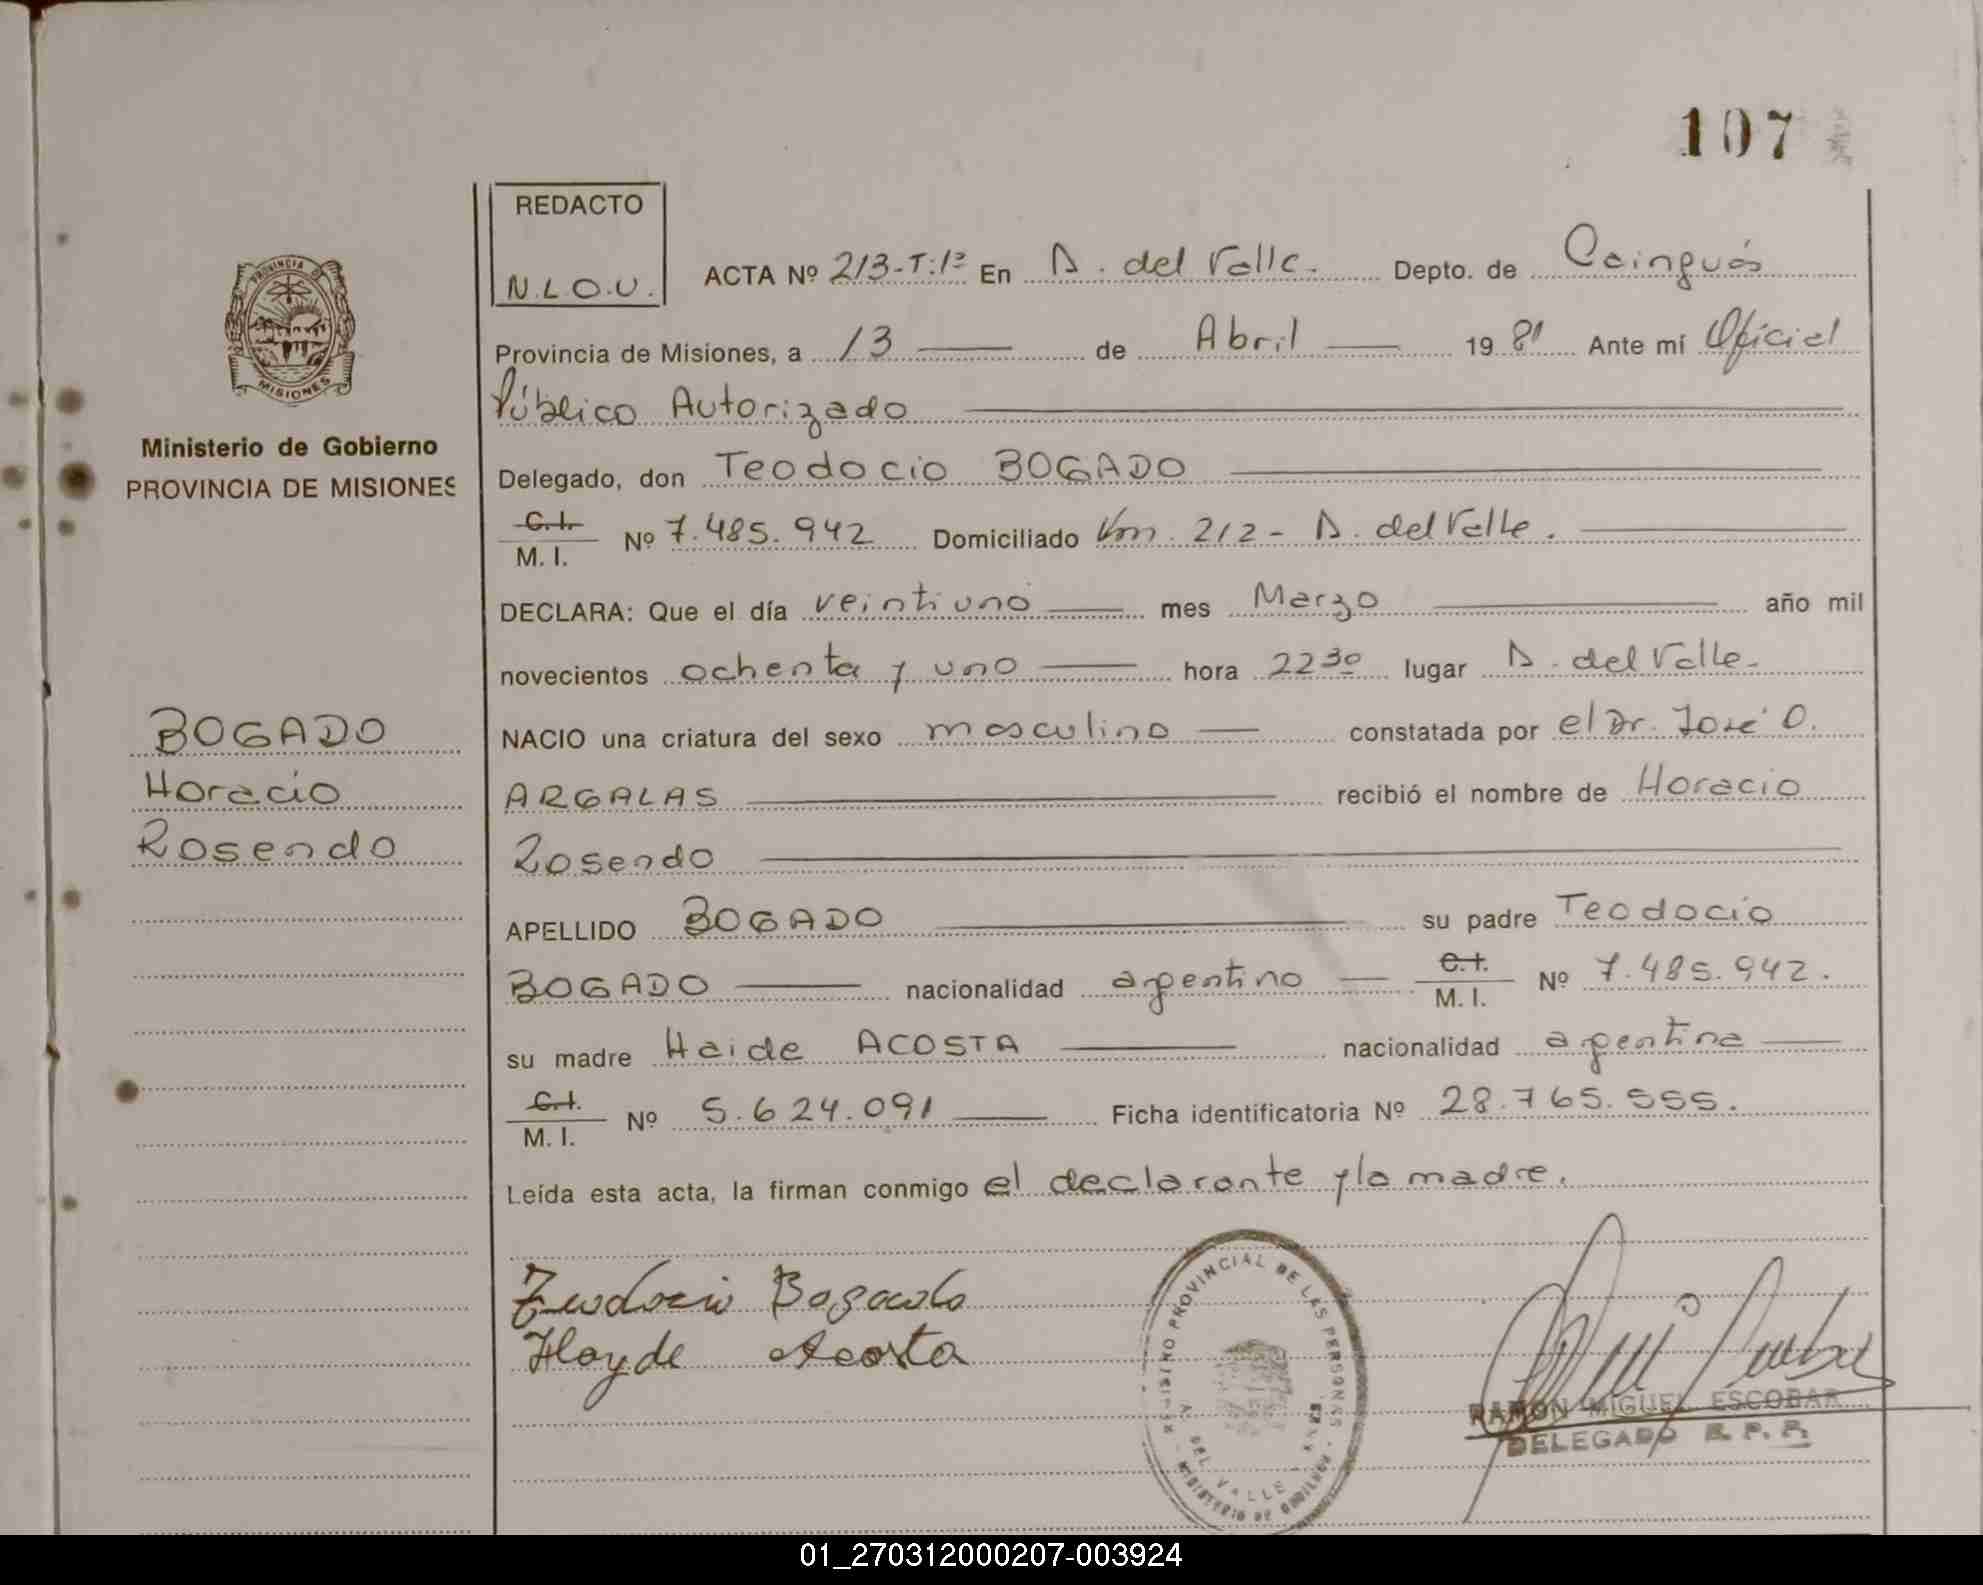 107
REDACTO
N.L.O.U.
ACTA Nº 213-T:1º En A. del Valle. Depto. de Cainguás
PROVINCIA DE MISIONES
Provincia de Misiones, a 13 de Abril 1981 Ante mí Oficial
Público Autorizado
Ministerio de Gobierno
PROVINCIA DE MISIONES
Delegado, don Teodocio BOGADO
C.I. M.I. Nº 7.485.942 Domiciliado Km. 212 - A. del Valle.
DECLARA: Que el día veintiuno mes Marzo año mil
novecientos ochenta y uno hora 22 30 lugar A. del Valle.
BOGADO
Horacio
Rosendo
NACIO una criatura del sexo masculino constatada por el Dr. José O.
ARGALAS recibió el nombre de Horacio
Rosendo
APELLIDO BOGADO su padre Teodocio
BOGADO nacionalidad argentino C.I. M.I. Nº 7.485.942.
su madre Haide ACOSTA nacionalidad argentina
C.I. M.I. Nº 5.624.091 Ficha identificatoria Nº 28.765.555.
Leída esta acta, la firman conmigo el declarante y la madre.
Teodocio Bogado
Hayde Acosta
REGISTRO PROVINCIAL DE LAS PERSONAS
A. DEL VALLE
RAMON MIGUEL ESCOBAR
DELEGADO R. P. P.
01_270312000207-003924